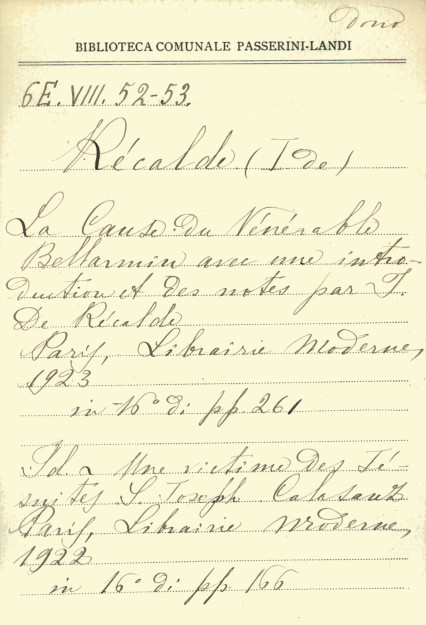 Dono
BIBLIOTECA COMUNALE PASSERINI-LANDI
6E. VIII. 52-53.
Récalde (I de)
La Cause du Vénérable
Bellarmin avec une intro-
duction et des notes par I.
De Récalde
Paris, Librairie Moderne,
1923
in 16° di pp. 261
Id - Une victime des Jé-
suites S. Joseph Calasanz
Paris, Librairie Moderne,
1922
in 16° di pp. 166